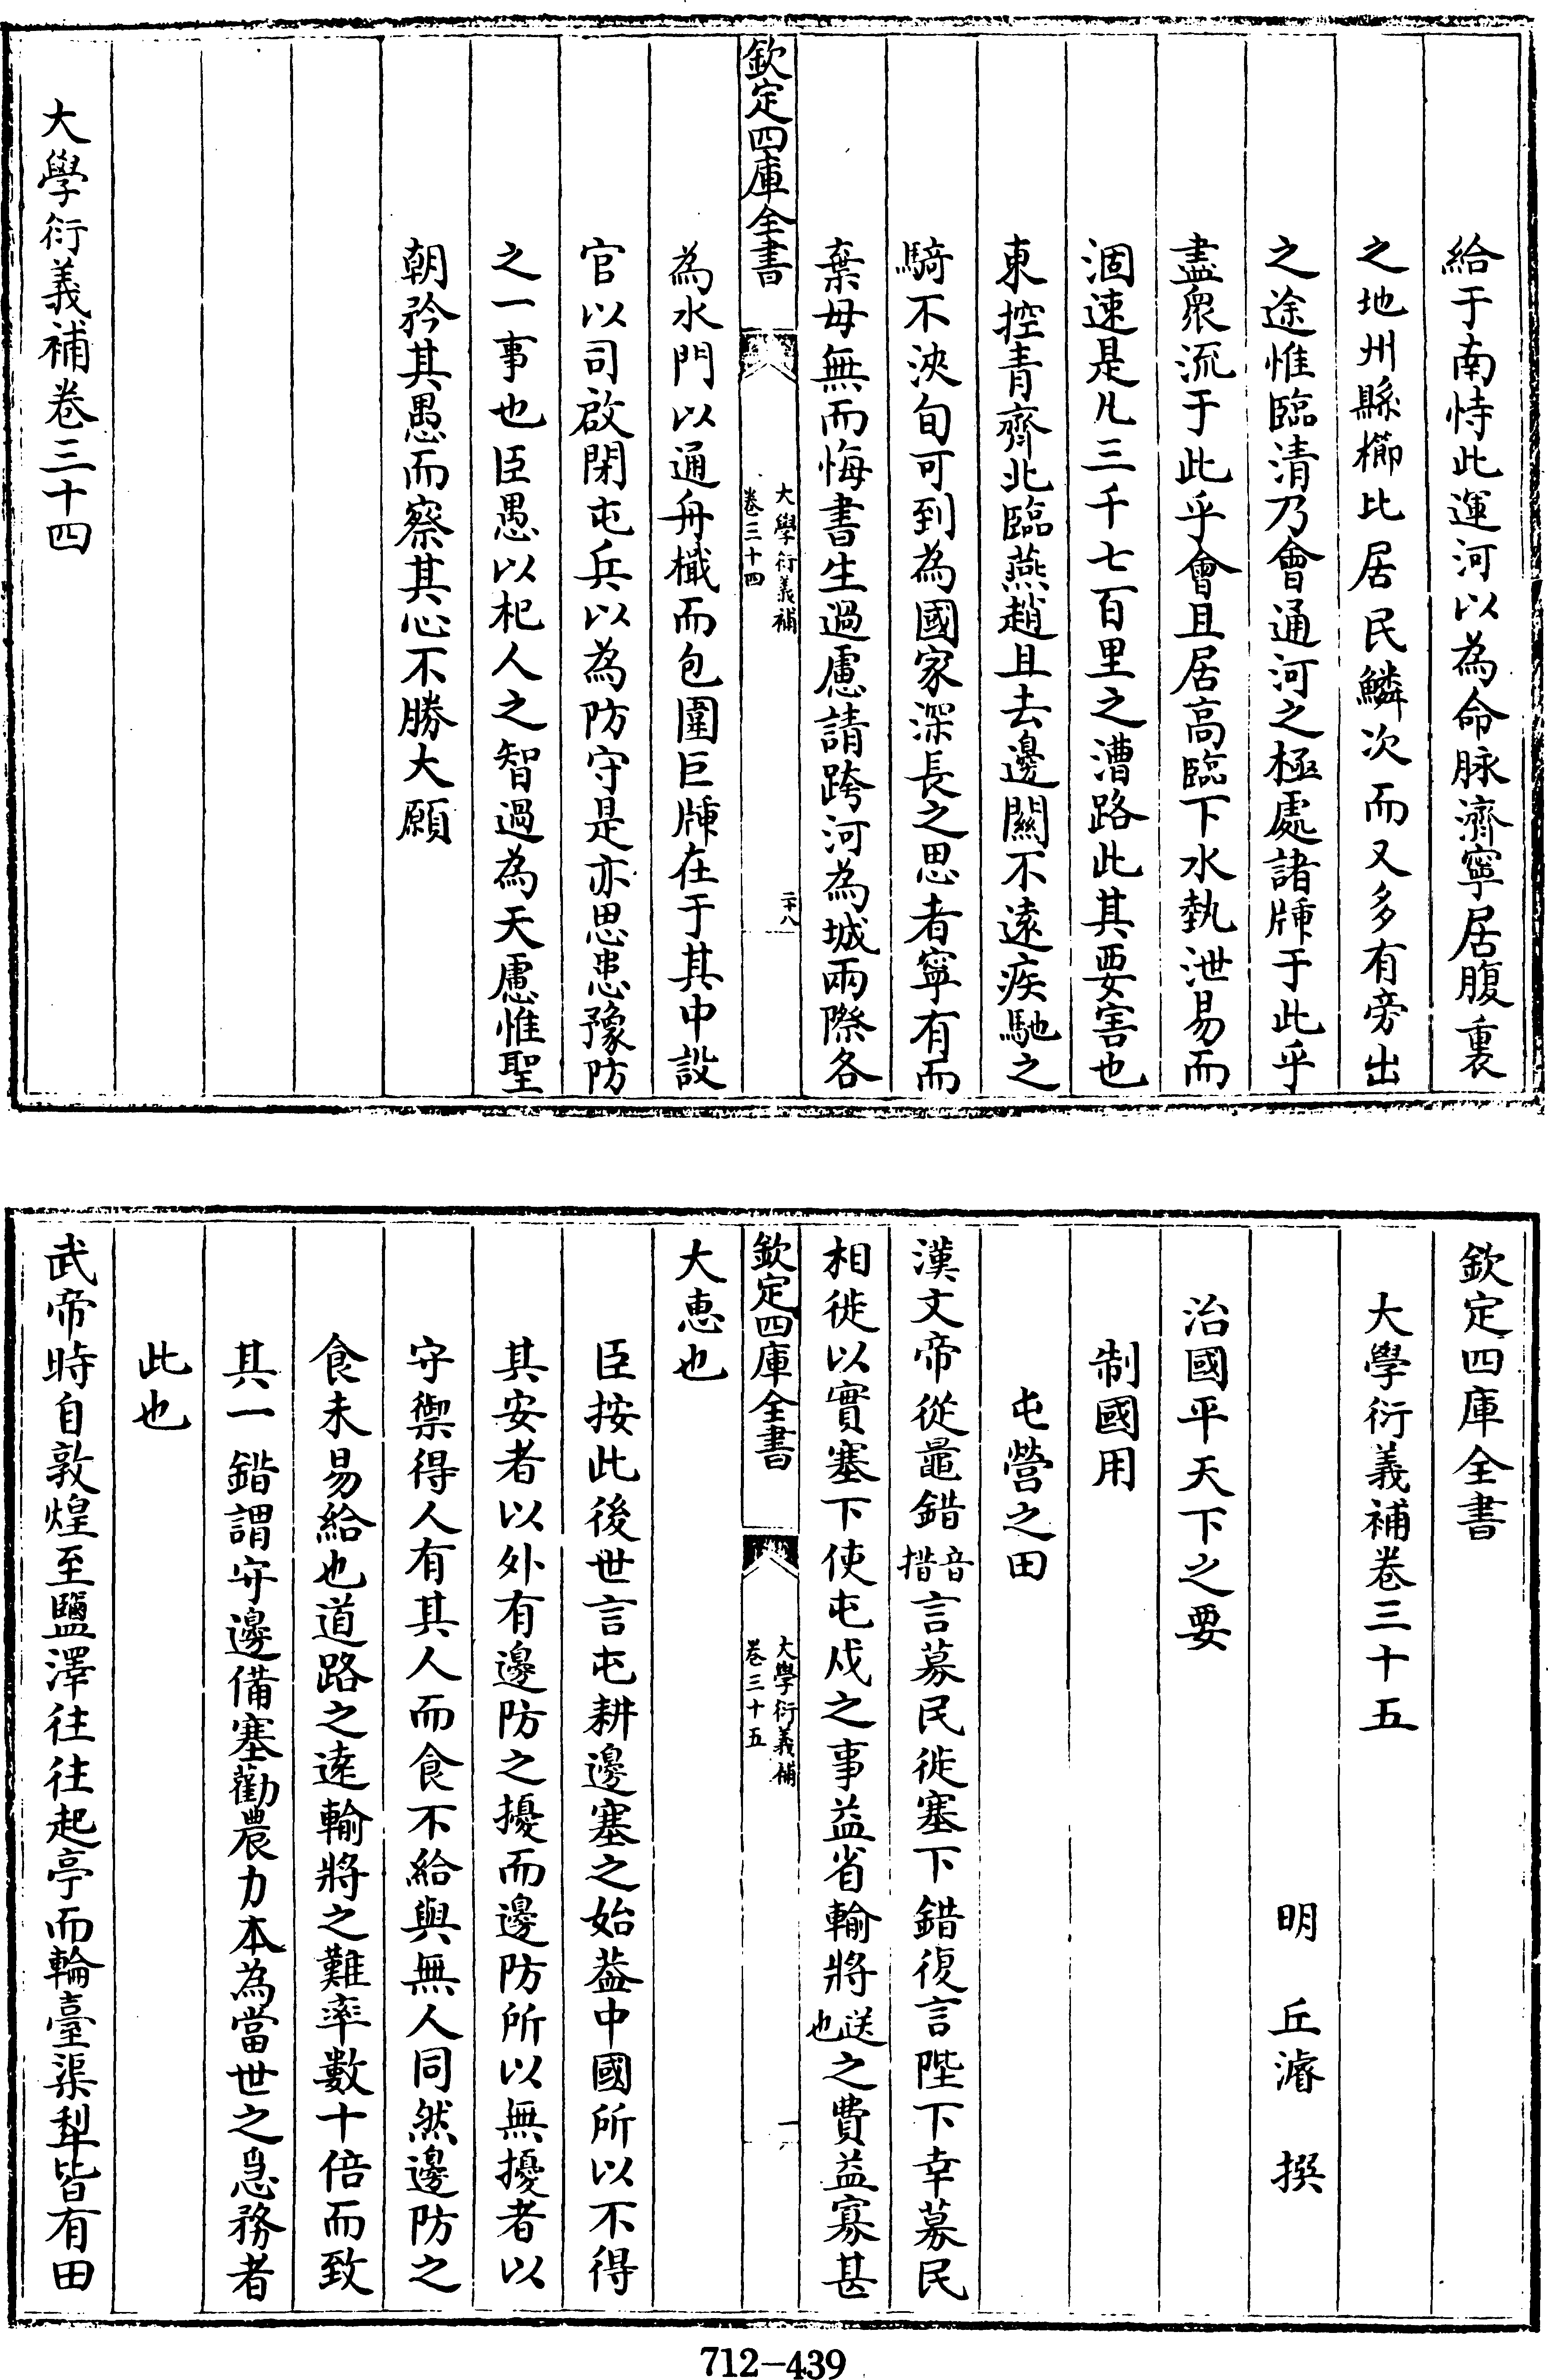 給于南恃此運河以為命脉濟寧居腹裏
之地州縣櫛比居民鱗次而又多有旁出
之途惟臨清乃會通河之極處諸牐于此乎
盡衆流于此乎會且居高臨下水埶泄易而
涸速是凡三千七百里之漕路此其要害也
東控青齊北臨燕趙且去邊關不遠疾馳之
騎不浹旬可到為國家深長之思者寧有而
棄毋無而悔書生過慮請跨河為城兩際各
欽定四庫全書
大學衍義補
卷三十四
二十八
為水門以通舟檝而包圍巨牐在于其中設
官以司啟閉屯兵以為防守是亦思患豫防
之一事也臣愚以杞人之智過為天慮惟聖
朝矜其愚而察其心不勝大願
大學衍義補卷三十四
欽定四庫全書
大學衍義補卷三十五
明 丘濬 撰
治國平天下之要
制國用
屯營之田
漢文帝從鼂錯音措言募民徙塞下錯復言陛下幸募民
相徙以實塞下使屯戍之事益省輸將送也之費益寡甚
欽定四庫全書
大學衍義補
卷三十五
一
大惠也
臣按此後世言屯耕邊塞之始葢中國所以不得
其安者以外有邊防之擾而邊防所以無擾者以
守禦得人有其人而食不給與無人同然邊防之
食未易給也道路之遠輸將之難率數十倍而致
其一錯謂守邊備塞勸農力本為當世之急務者
此也
武帝時自敦煌至鹽澤往往起亭而輪臺渠犂皆有田
712-439